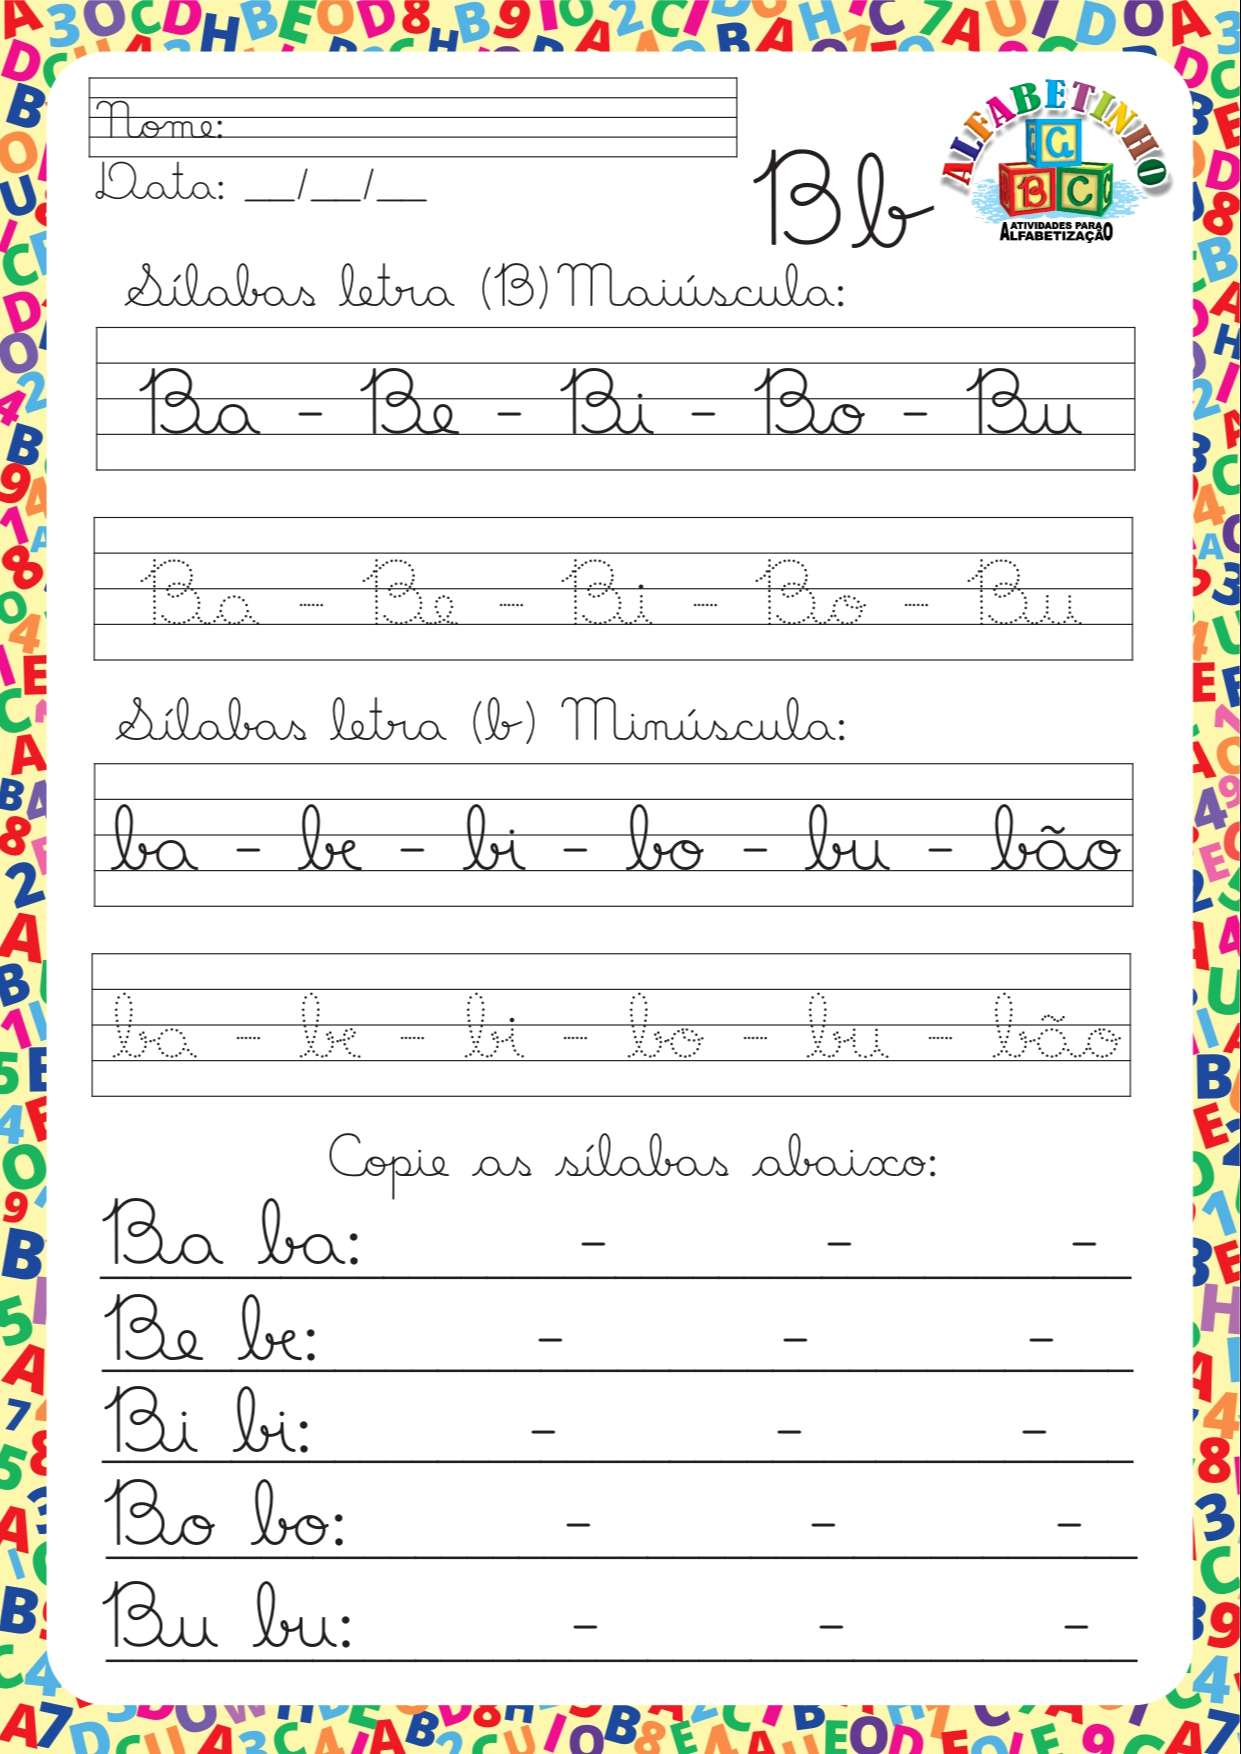 Nome:
ALFABETINHO
a
B C
ATIVIDADES PARA
ALFABETIZAÇÃO
Data: __/__/__
B b
Sílabas letra (B) Maiúscula:
Ba - Be - Bi - Bo - Bu
Ba - Be - Bi - Bo - Bu
Sílabas letra (b) Minúscula:
ba - be - bi - bo - bu - bão
ba - be - bi - bo - bu - bão
Copie as sílabas abaixo:
Ba ba: - - -
Be be: - - -
Bi bi: - - -
Bo bo: - - -
Bu bu: - - -